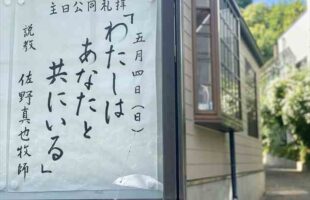 主日公同礼拝
五月四日(日)
「わたしは
あなたと
共にいる」
説教 佐野真也牧師